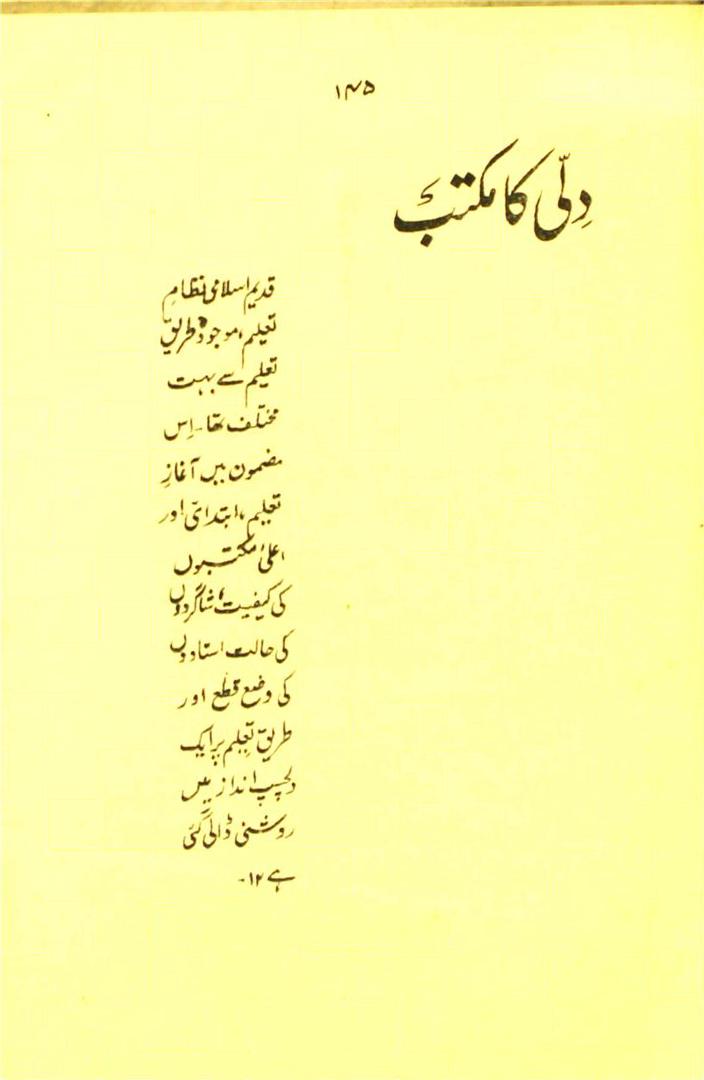 ۱۴۵
دِلّی کا مکتب
قدیم اسلامی نظامِ
تعلیم، موجودہ طریقِ
تعلیم سے بہت
مختلف تھا۔ اِس
مضمون میں آغازِ
تعلیم، ابتدائی اور
اعلیٰ مکتبوں
کی کیفیت، شاگردوں
کی حالت استادوں
کی وضع قطع اور
طریقِ تعلیم پر ایک
دلچسپ انداز میں
روشنی ڈالی گئی
ہے ۱۲۔